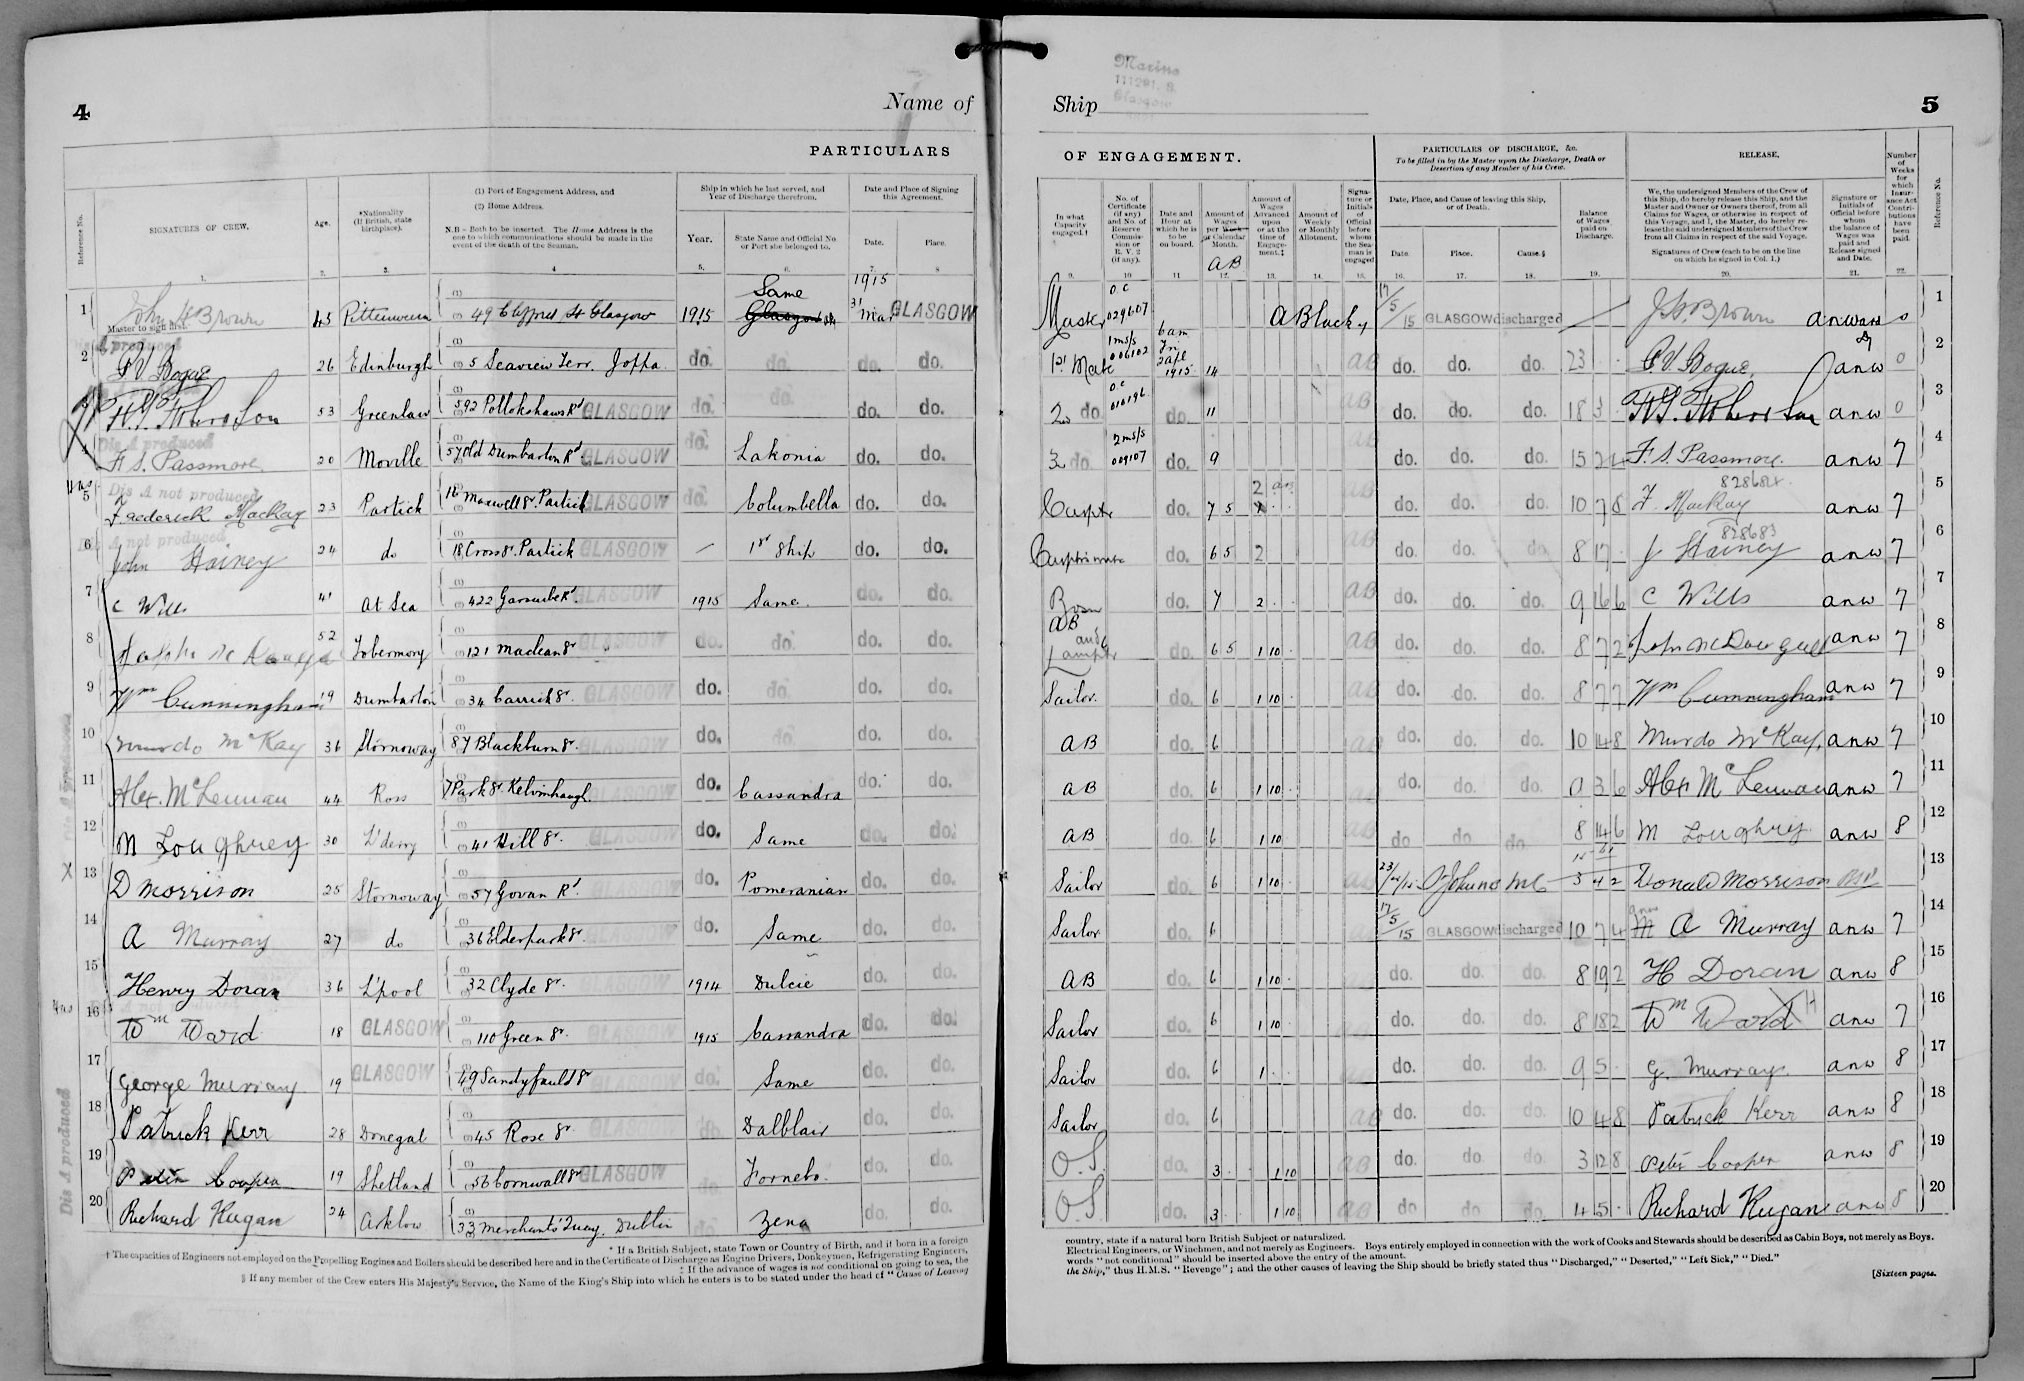 4
Name of
PARTICULARS
Reference No.
SIGNATURES OF CREW.
Age.
*Nationality
(If British, state
birthplace).
(1) Port of Engagement Address, and
(2) Home Address.
N.B - Both to be inserted. The Home Address is the
one to which communications should be made in the
event of the death of the Seaman.
Ship in which he last served, and
Year of Discharge therefrom.
Year.
State Name and Official No.
or Port she belonged to.
Date and Place of Signing
this Agreement.
Date.
Place.
1. 2. 3. 4 5. 6. 7. 8
1915
1 John H Brown 45 Pittenweem 49 Clifford St Glasgow 1915 Same Glasgow 31 Mar GLASGOW
Master to sign first.
Dis A produced
2 P V Bogue 26 Edinburgh 5 Seaview Terr. Joppa do. do. do. do.
3 53 Greenlaw 592 Pollokshaws Rd GLASGOW do. do. do. do.
Dis A produced
4 F. S. Passmore 20 Moville 57 Old Dumbarton Rd GLASGOW do. Lakonia do. do.
Dis A not produced
5 Frederick MacKay 23 Partick 16 Maxwell St. Partick GLASGOW do. Columbella do. do.
Dis A not produced
6 John Stainey 24 do 18 Cross St. Partick GLASGOW - 1st Ship do. do.
7 C Wills 41 At Sea 422 Garscube Rd GLASGOW 1915 Same. do. do.
8 52 Tobermory 121 Maclean St GLASGOW do. do. do. do.
9 Wm Cunningham 19 Dumbarton 34 Carrick St. GLASGOW do. do. do. do.
10 Murdo McKay 36 Stornoway 87 Blackburn St. GLASGOW do. do. do. do.
11 Alex. McLennan 44 Ross 7 Park St. Kelvinhaugh. GLASGOW do. Cassandra do. do.
12 M Loughrey 30 L'derry 41 Hill St. GLASGOW do. Same do. do.
X 13 D Morrison 25 Stornoway 57 Govan Rd. GLASGOW do. Pomeranian do. do.
14 A Murray 27 do 36 Elderpark St. GLASGOW do. Same do. do.
15 Henry Doran 36 L'pool 32 Clyde St. GLASGOW 1914 Dulcie do. do.
16 Wm Ward 18 GLASGOW 110 Green St. GLASGOW 1915 Cassandra do. do.
17 George Murray 19 GLASGOW 49 Sandyfauld St GLASGOW do. Same do. do.
18 Patrick Kerr 28 Donegal 45 Rose St. GLASGOW do. Dalblair do. do.
19 Peter Cooper 19 Shetland 56 Cornwall St GLASGOW do. Fornebo. do. do.
20 Richard Hugan 24 Arklow 33 Merchants Quay. Dublin do. Zena do. do.
Dis A produced
Dis A produced
* If a British Subject, state Town or Country of Birth, and if born in a foreign
† The capacities of Engineers not employed on the Propelling Engines and Boilers should be described here and in the Certificate of Discharge as Engine Drivers, Donkeymen, Refrigerating Engineers,
‡ If the advance of wages is not conditional on going to sea, the
§ If any member of the Crew enters His Majesty's Service, the Name of the King's Ship into which he enters is to be stated under the head of "Cause of Leaving
Marina
111291. S.
Glasgow
Ship
5
OF ENGAGEMENT.
In what
Capacity
engaged.†
No. of
Certificate
(if any)
and No. of
Reserve
Commission
or
R. V. 2
(if any).
Date and
Hour at
which he is
to be
on board.
Amount of
Wages
per Week
or Calendar
Month.
AB
Amount of
Wages
Advanced
upon
or at the
time of
Engagement.‡
Amount of
Weekly
or Monthly
Allotment.
Signature or
Initials
of
Official
before
whom
the Seaman is
engaged
PARTICULARS OF DISCHARGE, &c.
To be filled in by the Master upon the Discharge, Death or
Desertion of any Member of his Crew.
Date, Place, and Cause of leaving this Ship,
or of Death.
Date.
Place.
Cause.§
Balance
of Wages
paid on
Discharge.
RELEASE.
We, the undersigned Members of the Crew of
this Ship, do hereby release this Ship, and the
Master and Owner or Owners thereof, from all
Claims for Wages, or otherwise in respect of
this Voyage, and I, the Master, do hereby release
the said undersigned Members of the Crew
from all Claims in respect of the said Voyage.
Signatures of Crew (each to be on the line
on which he signed in Col. 1.)
Signature or
Initials of
Official before
whom
the balance of
Wages was
paid and
Release signed
and Date.
Number
of
Weeks
for
which
Insurance Act
Contributions
have
been
paid.
Reference No.
9. 10 11 12. 13. 14. 15. 16. 17. 18. 19. 20. 21. 22.
Master O.C 029607 17/5/15 GLASGOW discharged J H. Brown 0 1
1st Mate 1 m/s/s 006102 6 am 2 Apl 1915 14 AB do. do. do. 23 P. V. Bogue. anw 0 2
2nd do. O.C 010196 do. 11 AB do. do. do. 18 3 anw 0 3
3 do. 2 m/s/s 009107 do. 9 AB do. do. do. 15 2 4 F. S. Passmore. anw 7 4
Carptr do. 7 5 2 AB do. do. do. 10 7 8 F. MacKay anw 7 5
do. 6 5 2 AB do. do. do. 8 17 828683 J Stainey anw 7 6
Bosn do. 7 2 AB do. do. do. 9 16 6 C Wills anw 7 7
AB and Lamptr do. 6 5 1 10 AB do. do. do. 8 7 2 John McDougall anw 7 8
Sailor. do. 6 1 10 AB do. do. do. 8 7 7 Wm Cunningham anw 7 9
AB do. 6 AB do. do. do. 10 14 8 Murdo McKay. anw 7 10
AB do. 6 1 10 AB do. do. do. 0 3 6 Alex McLennan anw 7 11
AB do. 6 1 10 AB do do. do. 8 14 6 M Loughrey anw 8 12
Sailor do. 6 1 10 AB St Johns NB 3 4 2 Donald Morrison 13
Sailor do. 6 17/5/15 GLASGOW discharged 10 7 4 A Murray anw 7 14
AB do. 6 1 10 do. do. do. 8 19 2 H Doran anw 8 15
Sailor do. 6 1 10 do. do. do. 8 18 2 Wm Ward anw 7 16
Sailor do. 6 1 do. do. do. 9 5 G. Murray. anw 8 17
Sailor do. 6 AB do. do. do. 10 4 8 Patrick Kerr anw 8 18
O.S. do. 3 1 10 AB do. do. do. 3 12 8 Peter Cooper anw 8 19
O.S. do. 3 1 10 AB do do. do. 4 5 Richard Hugan anw 8 20
country, state if a natural born British Subject or naturalized.
Electrical Engineers, or Winchmen, and not merely as Engineers. Boys entirely employed in connection with the work of Cooks and Stewards should be described as Cabin Boys, not merely as Boys.
words "not conditional" should be inserted above the entry of the amount.
the Ship," thus H.M.S. "Revenge"; and the other causes of leaving the Ship should be briefly stated thus "Discharged," "Deserted," "Left Sick," "Died."
[Sixteen pages.